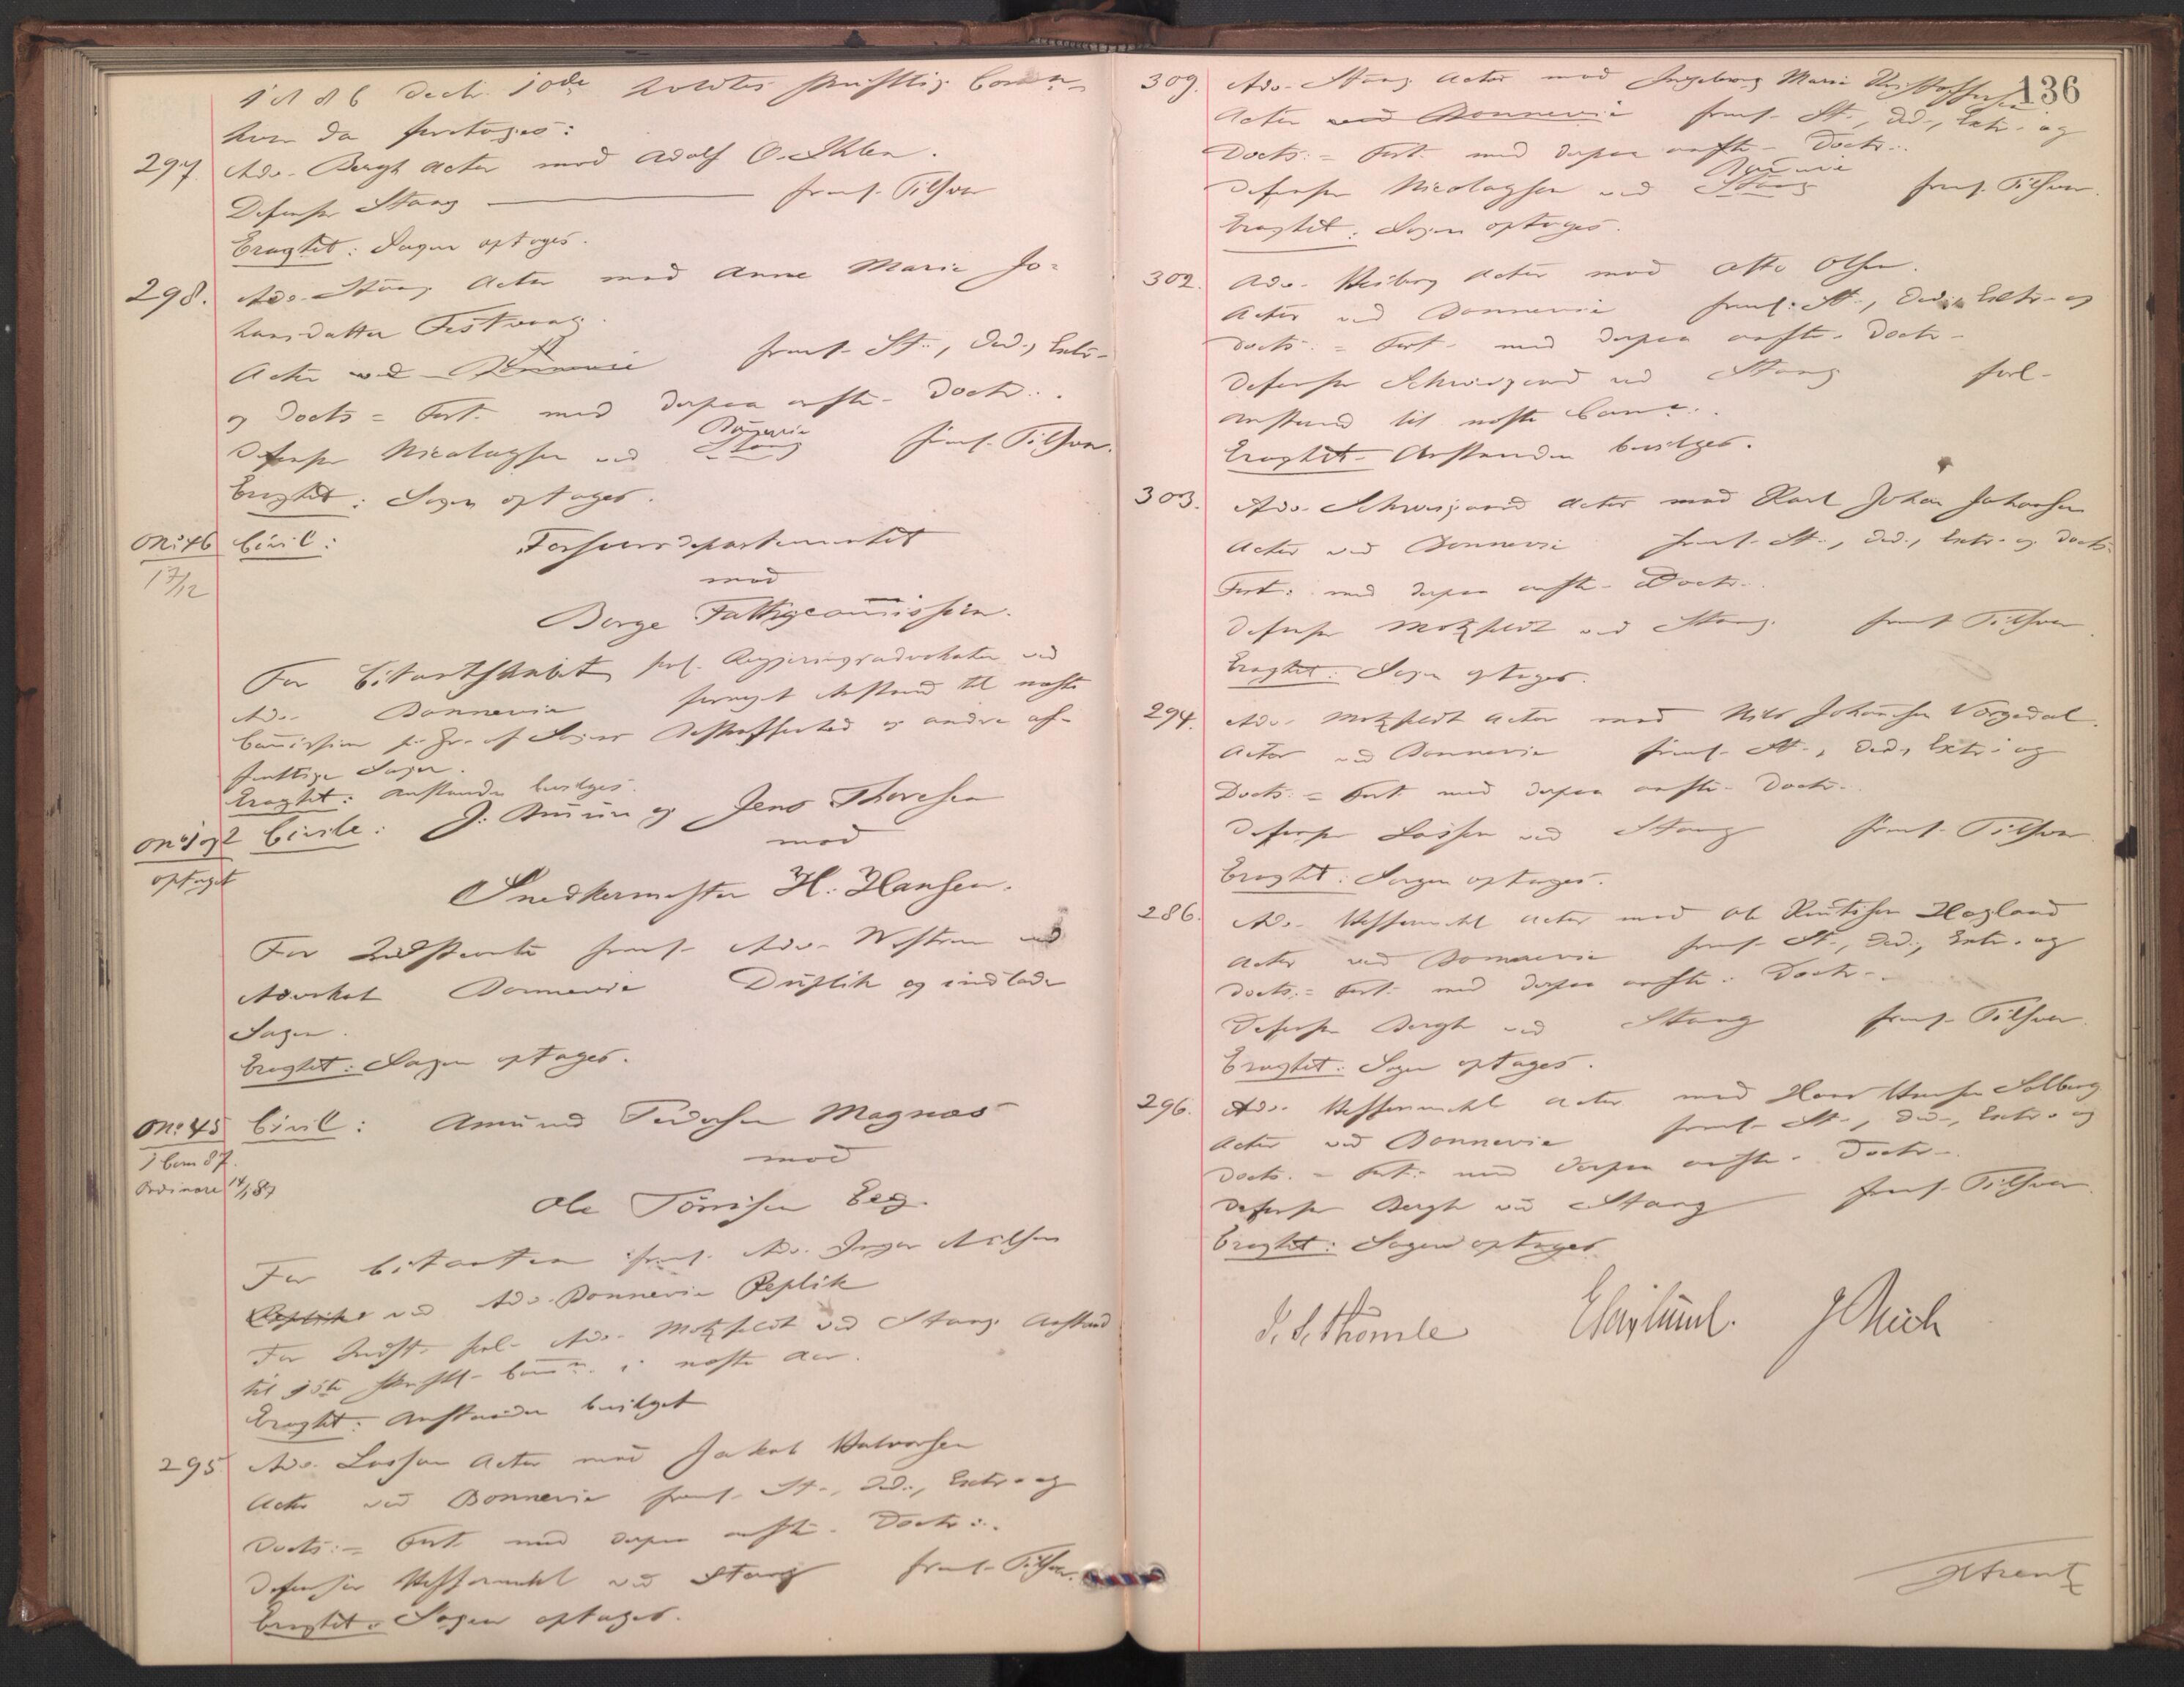 1886 Decbr 10de holdtes skriftlig Comn
hvor da foretoges:
297. Adv. Bergh Actor mod Adolf O. Ihlen.
Defensor Stang freml. Tilsvar
Eragtet: Sagen optoges.
298. Adv. Stang Actor mod Anne Marie Jo-
hansdatter Testvang.
Actor ved Bonnevie freml. St., Ded., Extr.
og Docts = Fort. med derpaa anfte. Doctr.
Defensor Nicolaysen ved Bonnevie Stang freml. Tilsvar.
Eragtet: Sagen optages.
No: 46 Civil: Forsvarsdepartementet
17/12 mod
Borge Fattigcommission.
For Citantskabet Regjeringsadvokaten ved
Adv. Bonnevie fornyet Anstand til næste
Commission Sagens og andre
Sager.
Eragtet: Anstanden bevilges.
No 1 og 2 Civile: J. Bruun og Jens Thoresen
optaget mod
Snedkermester H. Hansen.
For Indstevnte freml. Adv. ved
Advokat Bonnevie Duplik og indlader
Sagen.
Eragtet: Sagen optages.
No: 45 Civil: Amund Pedersen Magnæs
1 Com 87. mod
Ordinære 14/1 87 Ole Tönnisen Eeg.
For Citanten freml. Adv. Nilsen
Replik ved Adv. Bonnevie Replik
For Indst. forl. Adv. Motzfeldt ved Stang Anstand
til 1ste skriftl. Comn. i næste Aar.
Eragtet: Anstanden bevilget
295 Adv. Lassen Actor mod Jakob Halvorsen
Actor ved Bonnevie freml. St., Ded., Extr. og
Docts: = Fort. med derpaa anfte. Doctr.
Defensor Hesselberg ved Stang freml. Tilsvar.
Eragtet: Sagen optages.
136
309. Adv. Stang Actor mod Ingeborg Marie Kristoffersen
Actor ved Bonnevie freml. St., Ded., Extr. og
Docts: = Fort. med derpaa anfte. Doctr.
Defensor Nicolaysen ved Bonnevie Stang freml. Tilsvar.
Eragtet: Sagen optages.
302. Adv. Heiberg Actor mod Otto Olsen.
Actor ved Bonnevie freml. St., Ded., Extr. og
Docts: = Fort. med derpaa anfte. Doctr.
Defensor Schweigaard ved Stang forl.
Anstand til næste Comn.
Eragtet: Anstanden bevilges.
303. Adv. Schweigaard Actor mod Karl Johan Johansen
Actor ved Bonnevie freml. St., Ded., Extr. og Docts.
Fort: med derpaa anfte. Doctr.
Defensor Motzfeldt ved Stang freml. Tilsvar.
Eragtet: Sagen optages.
294. Adv. Motzfeldt Actor mod Nils Johansen Vargedal.
Actor ved Bonnevie freml. St., Ded., Extr. og
Docts: = Fort. med derpaa anfte. Doctr.
Defensor Lassen ved Stang freml. Tilsvar.
Eragtet: Sagen optages.
286. Adv. Actor mod Ole Knutsen Hagland
Actor ved Bonnevie freml. St., Ded., Extr. og
Docts: = Fort. med derpaa anfte. Doctr.
Defensor Bergh ved Stang freml. Tilsvar.
Eragtet: Sagen optages.
296. Adv. Actor mod Hans Hansen Solberg
Actor ved Bonnevie freml. St., Ded., Extr. og
Docts. = Fort. med derpaa anfte. Doctr.
Defensor Bergh ved Stang freml. Tilsvar.
Eragtet: Sagen optages
S. S. Thomle